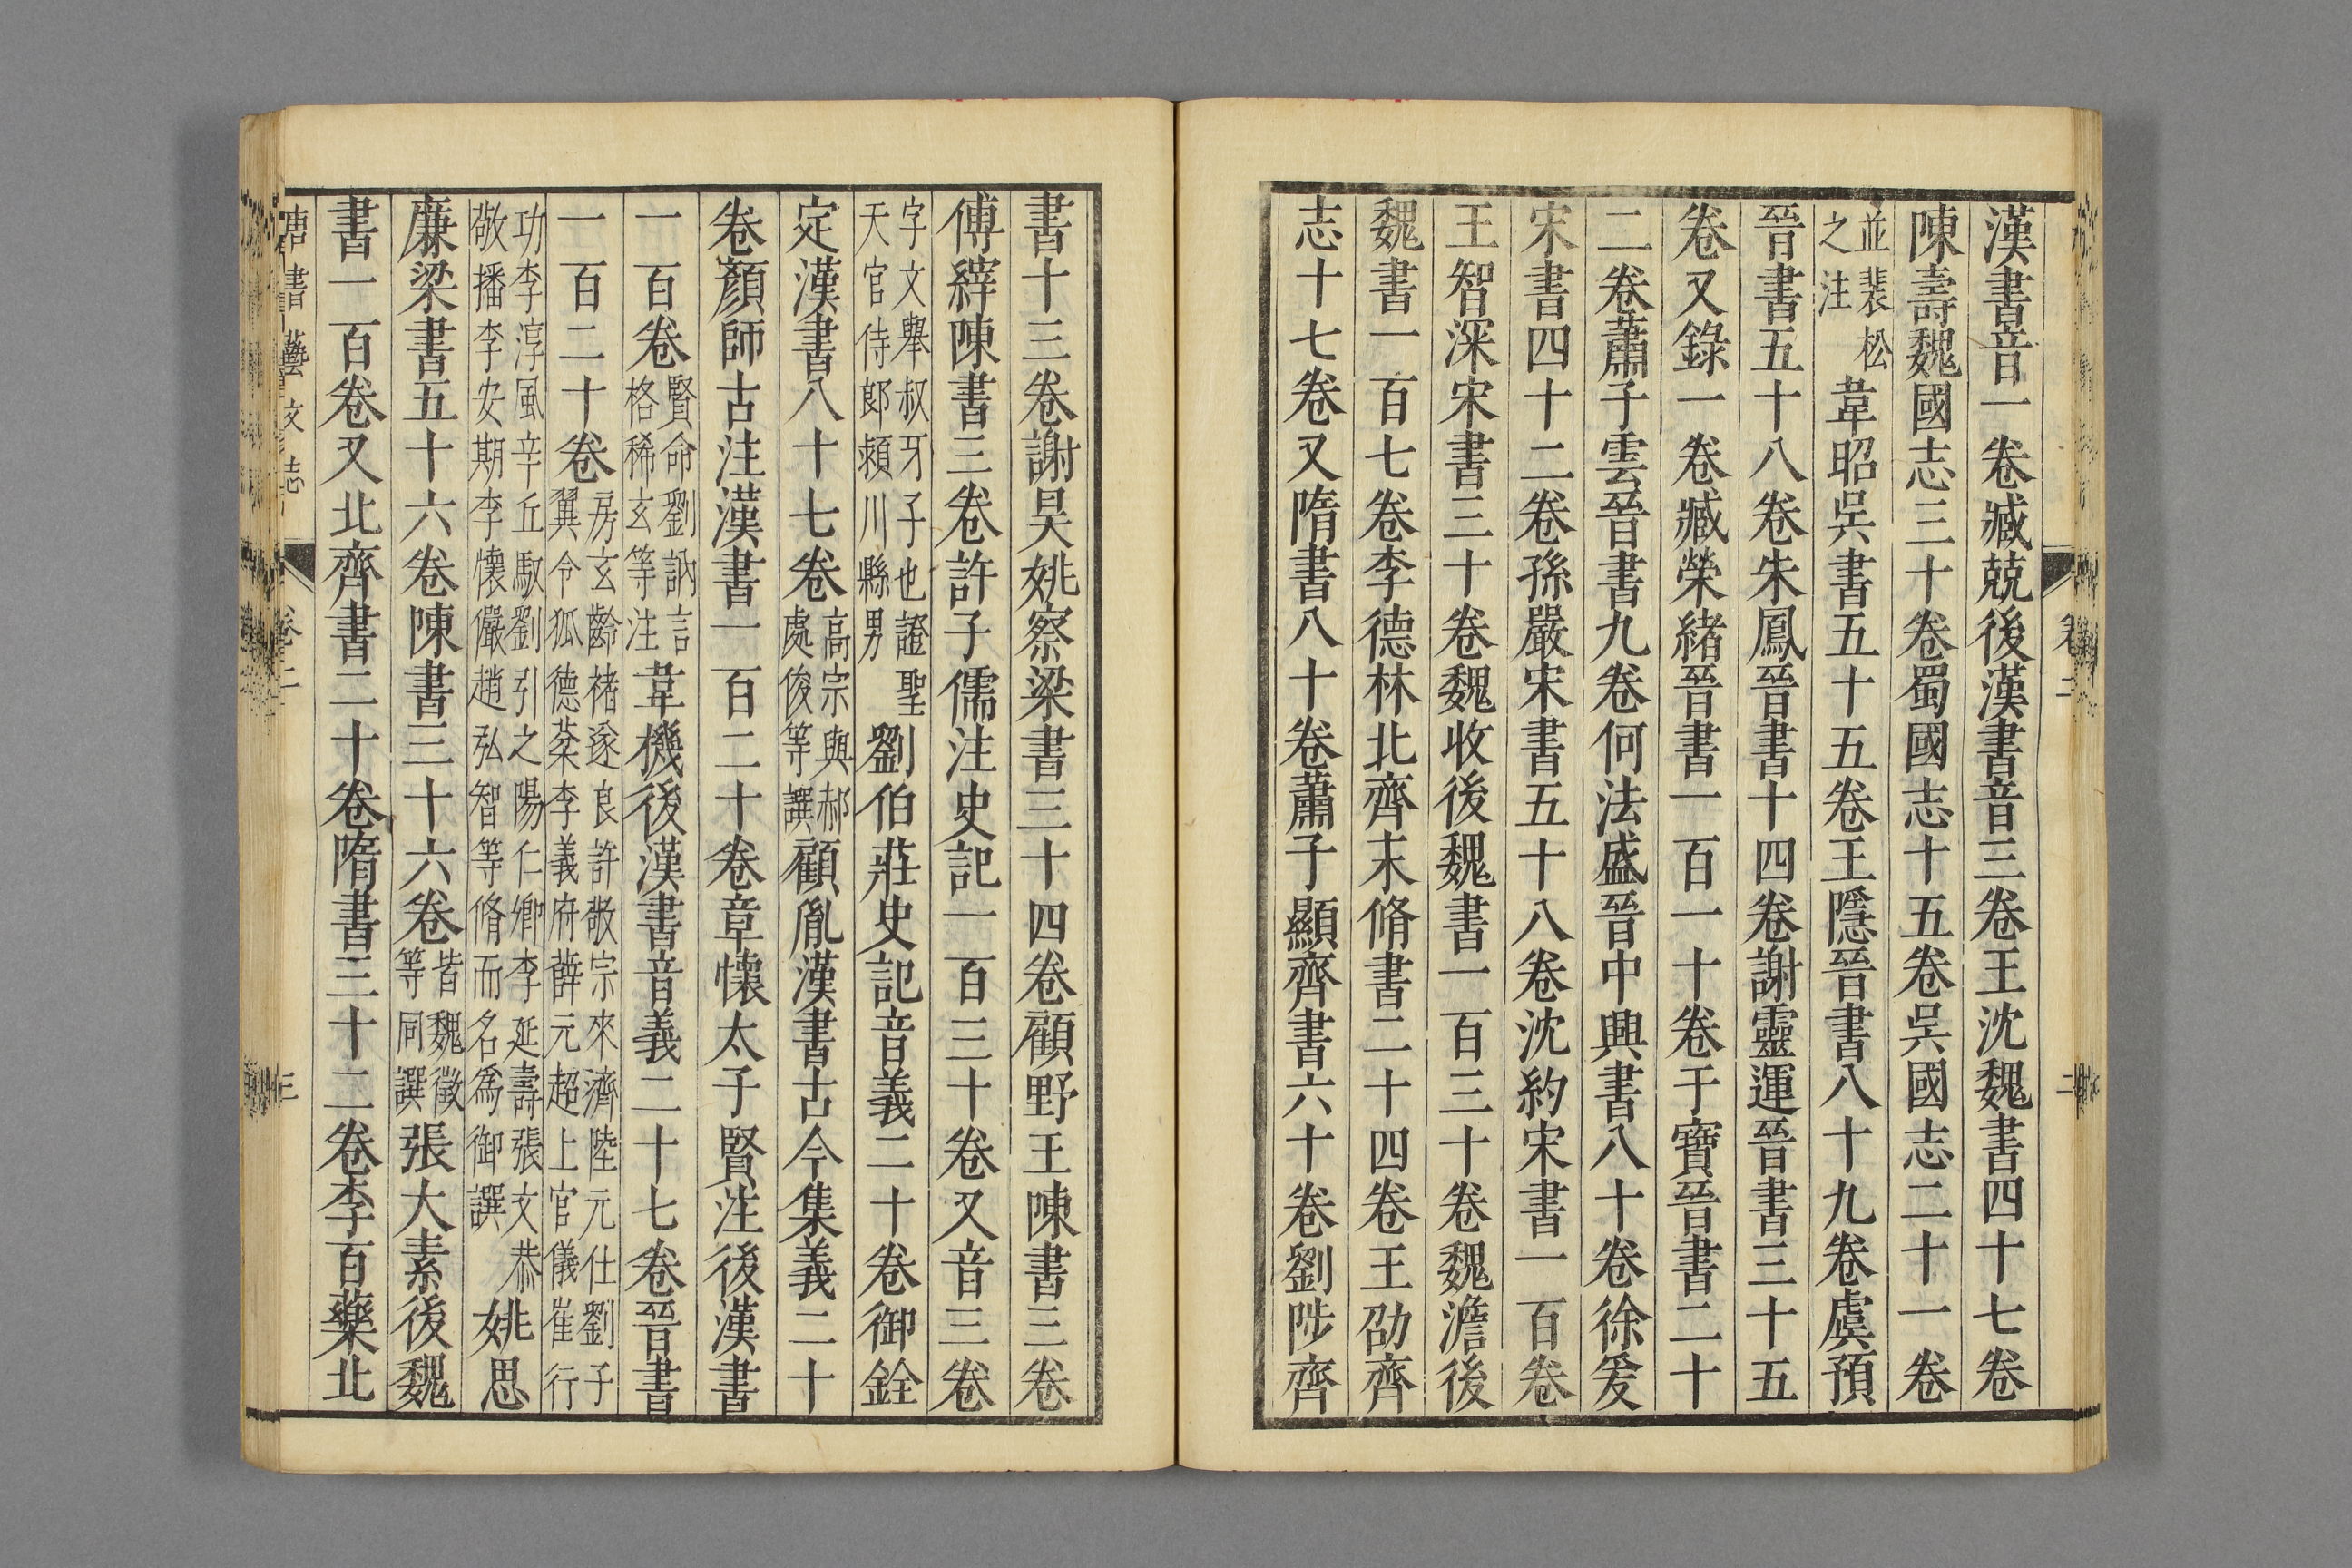 漢書音一卷臧兢後漢書音三卷王沈魏書四十七卷
陳壽魏國志三十卷蜀國志十五卷吳國志二十一卷
並裴松之注韋昭吳書五十五卷王隱晉書八十九卷虞預
晉書五十八卷朱鳳晉書十四卷謝靈運晉書三十五
卷又錄一卷臧榮緒晉書一百一十卷于寶晉書二十
二卷蕭子雲晉書九卷何法盛晉中興書八十卷徐爰
宋書四十二卷孫嚴宋書五十八卷沈約宋書一百卷
王智深宋書三十卷魏收後魏書一百三十卷魏澹後
魏書一百七卷李德林北齊末脩書二十四卷王劭齊
志十七卷又隋書八十卷蕭子顯齊書六十卷劉陟齊
書十三卷謝昊姚察梁書三十四卷顧野王陳書三卷
傅縡陳書三卷許子儒注史記一百三十卷又音三卷
字文舉叔牙子也證聖天官侍郎潁川縣男劉伯莊史記音義二十卷御銓
定漢書八十七卷高宗與郝處俊等譔顧胤漢書古今集義二十
卷顏師古注漢書一百二十卷章懷太子賢注後漢書
一百卷賢命劉訥言格希玄等注韋機後漢書音義二十七卷晉書
一百二十卷房玄齡褚遂良許敬宗來濟陸元仕劉子翼令狐德棻李義府薛元超上官儀崔行
功李淳風辛丘馭劉引之陽仁卿李延壽張文恭敬播李安期李懷儼趙弘智等脩而名為御譔姚思
廉梁書五十六卷陳書三十六卷皆魏徵等同譔張大素後魏
書一百卷又北齊書二十卷隋書三十二卷李百藥北
唐書藝文志 卷二 三